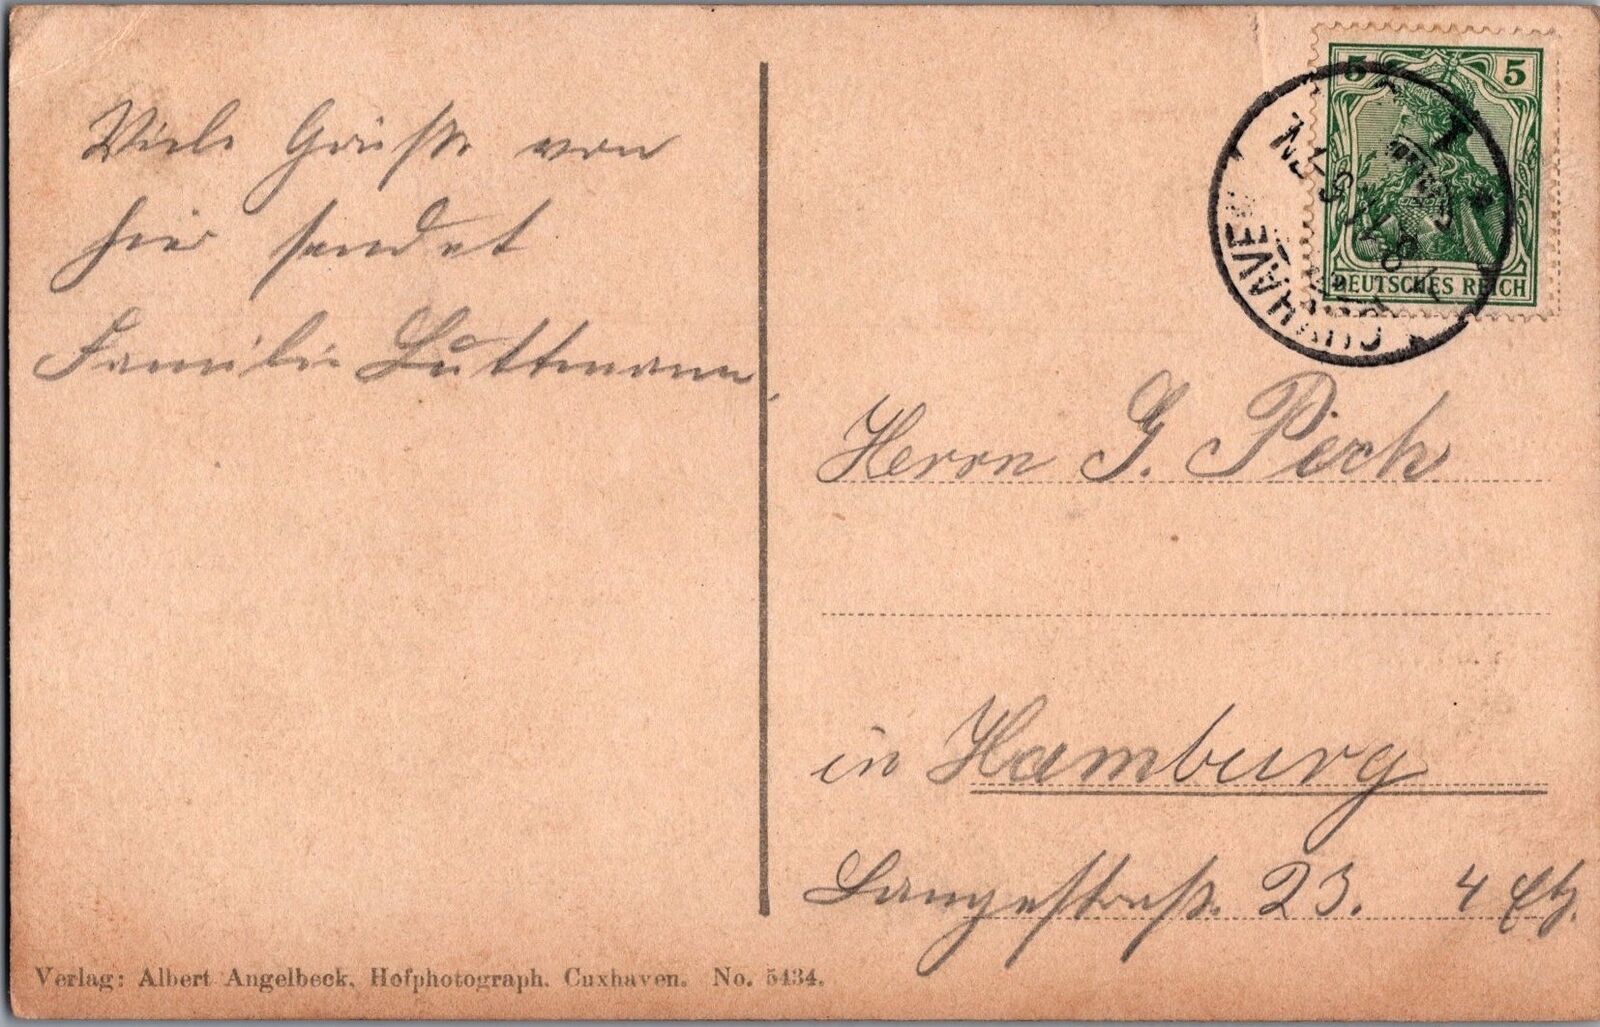 Viele Grüße von
hier sendet
Familie Luttmann
5 5
DEUTSCHES REICH
CUXHAVEN
Herrn G. Pech
in Hamburg
Langestraße 23. 4 Etg.
Verlag: Albert Angelbeck, Hofphotograph, Cuxhaven. No. 5434.